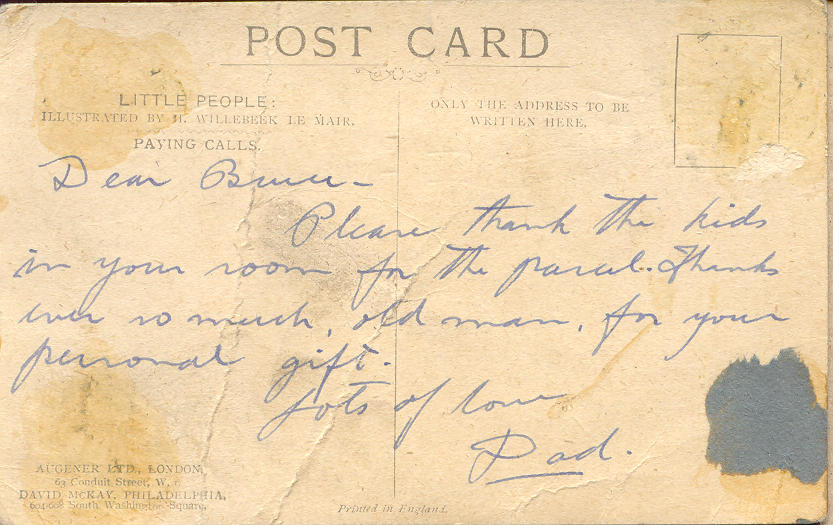 POST CARD
LITTLE PEOPLE:
ILLUSTRATED BY H. WILLEBEEK LE MAIR.
PAYING CALLS.
ONLY THE ADDRESS TO BE
WRITTEN HERE.
Dear Bruce -
Please thank the kids
in your room for the parcel. Thanks
ever so much, old man, for your
personal gift.
Lots of love
Dad.
AUGENER LTD., LONDON,
63 Conduit Street, W. 1
DAVID McKAY, PHILADELPHIA,
604-608 South Washington Square.
Printed in England.